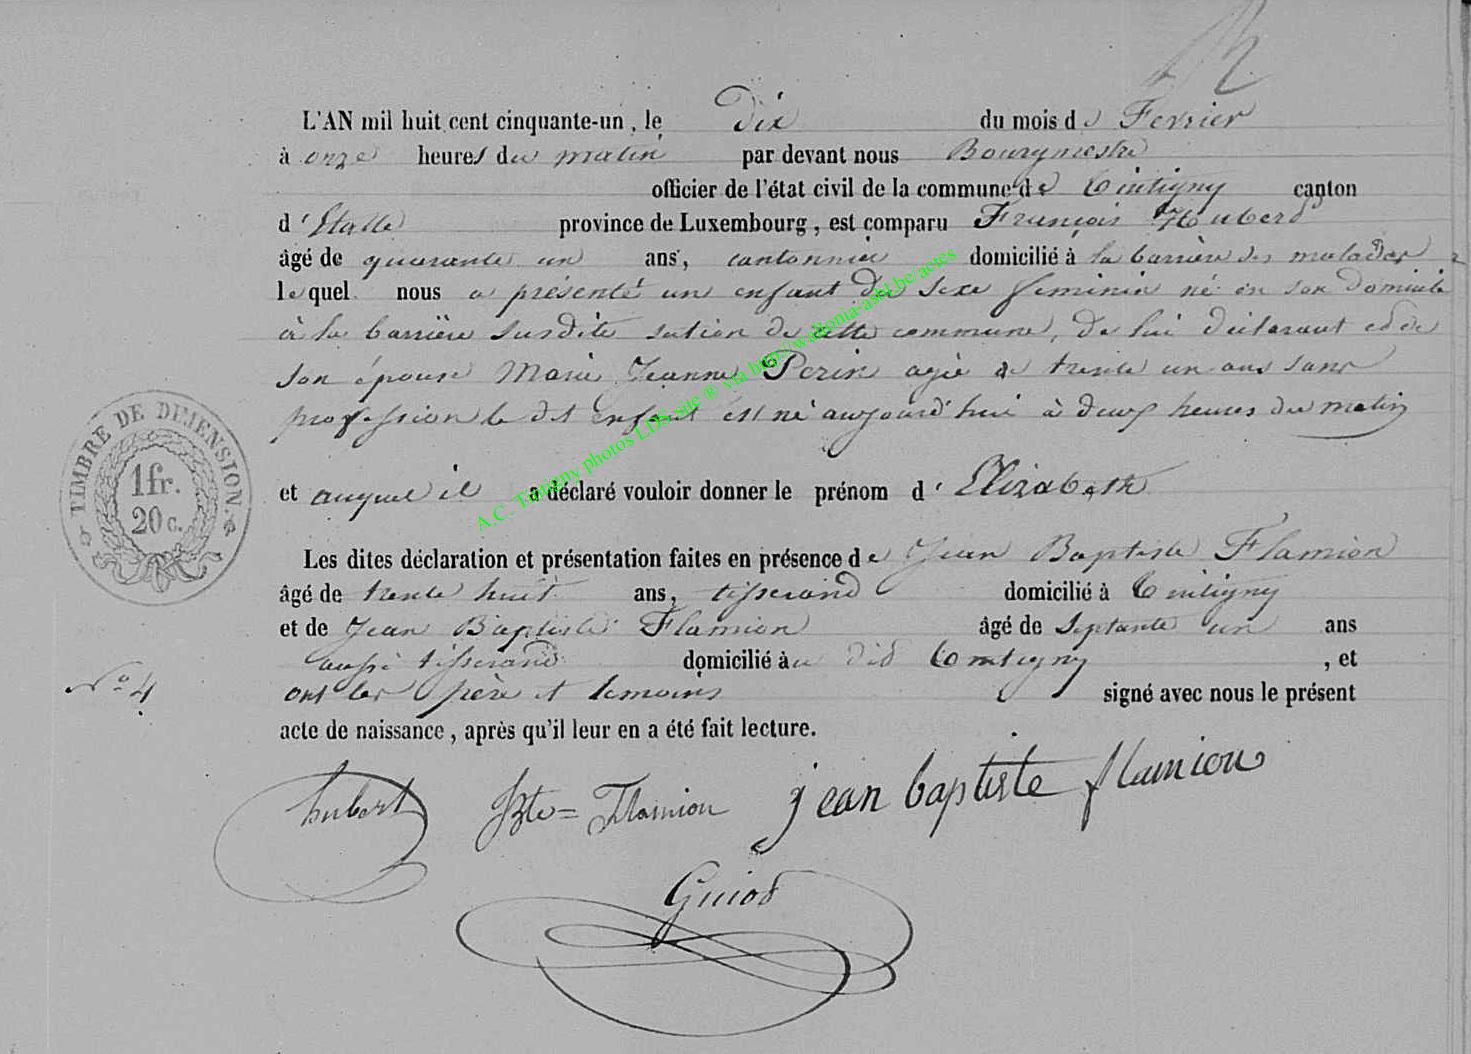 L'AN mil huit cent cinquante-un, le dix du mois de Fevrier
à onze heures du matin par devant nous Bourgmestre
officier de l'état civil de la commune de Tintigny canton
d'Etalle province de Luxembourg, est comparu François Hubert
âgé de quarante un ans, cantonnier domicilié à la barrière des malades
lequel nous a présenté un enfant de sexe feminin né en son domicile
à la barrière susdite section de cette commune, de lui déclarant et de
son épouse Marie Jeanne Perin agée de trente un ans sans
profession le dit enfant est né aujourd'hui à deux heures du matin
et auquel il a déclaré vouloir donner le prénom d'Elizabeth
Les dites déclaration et présentation faites en présence de Jean Baptiste Flamion
âgé de trente huit ans, tisserand domicilié à Tintigny
et de Jean Baptiste Flamion âgé de septante un ans
aussi tisserand domicilié au did Tintigny, et
ont les père et temoins signé avec nous le présent
acte de naissance, après qu'il leur en a été fait lecture.
hubert Bte= Flamion jean baptiste flamion
Guiod
TIMBRE DE DIMENSION.
1fr.
20 c.
N° 4
A.C. Tintigny photos LDS site ® via http://wallonia-asbl.be/actes